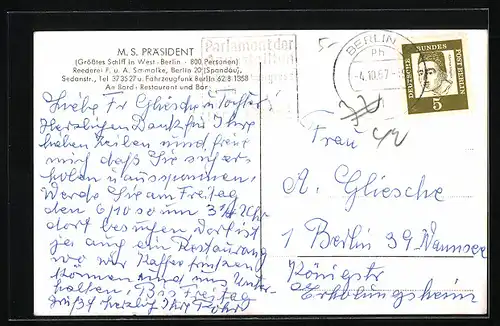 M. S. PRÄSIDENT
(Größtes Schiff in West-Berlin - 800 Personen)
Reederei F. u. A. Schmolke, Berlin 20 (Spandau),
Sedanstr., Tel 373527 u. Fahrzeugfunk Berlin 62 8 1358
An Bord: Restaurant und Bar
Liebe Fr Gliesche u Tochter!
Herzlichen Dank für Ihre
lieben Zeilen und freue
mich daß Sie sich er-
holen u ausspannen.
Werde Sie am Freitag
den 6/10 so um 3 Uhr
dort besuchen Dort ist
ja auch ein Restaurang
wo wir Kaffee trinken
kommen und uns Unter-
halten. Bis Freitag
grüßt herzlich Ihre
Parlament der
BERLIN
-4.10.67
DEUTSCHE BUNDESPOST BERLIN
5
Frau
A. Gliesche
1 Berlin 39 Wannsee
Königstr
Erholungsheim